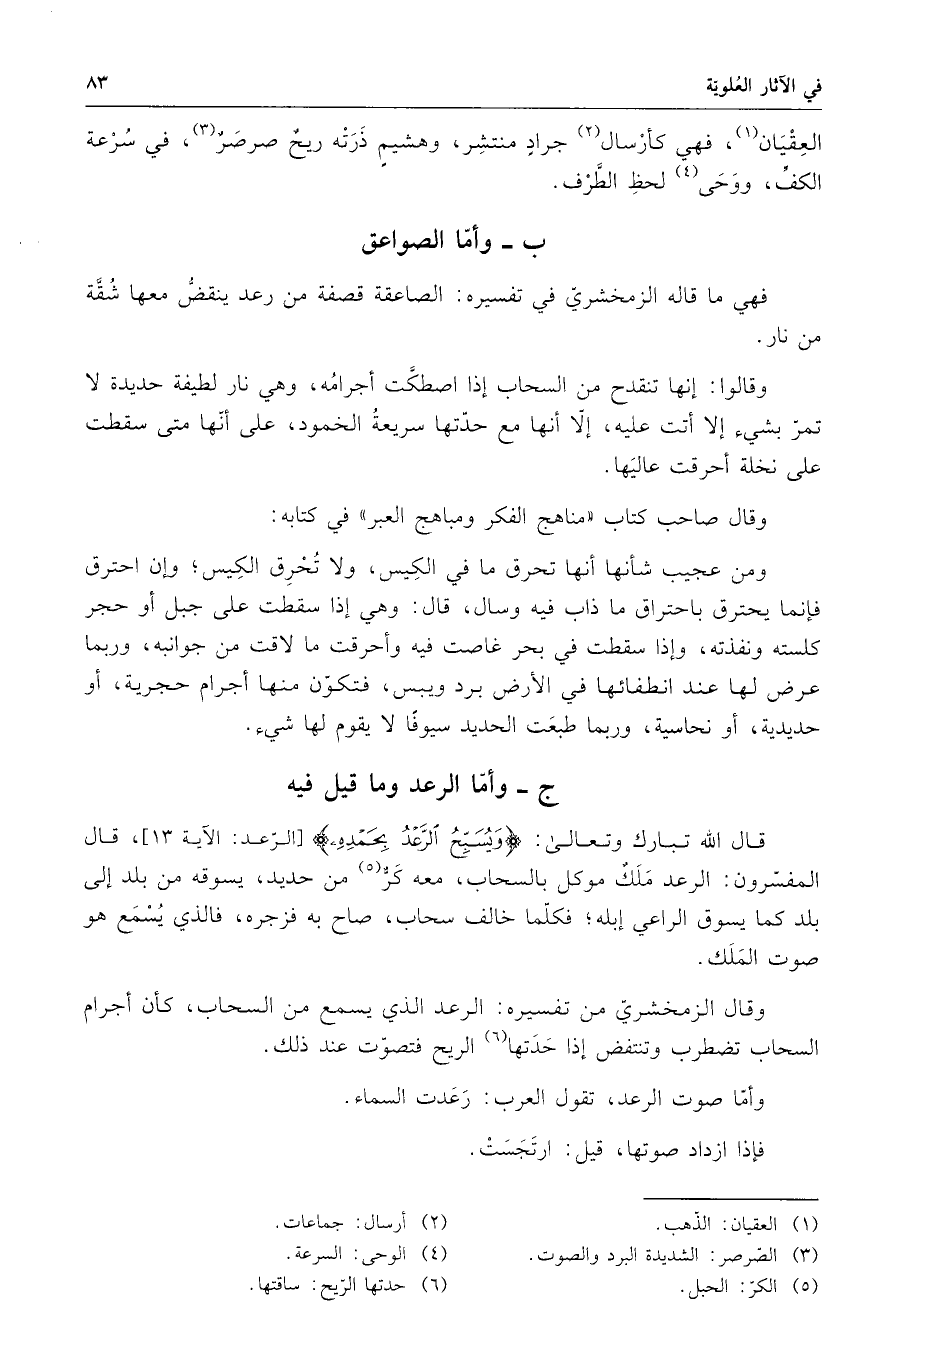 في الآثار العُلويّة ٨٣
العِقْيَان(١)، فهي كأرْسال(٢) جرادٍ منتشِر، وهشيمٍ ذَرَتْه ريحٌ صرصَرٌ(٣)، في سُرْعة
الكفِّ، ووَحَى(٤) لحظِ الطَّرْف.
ب ـ وأمّا الصواعق
فهي ما قاله الزمخشريّ في تفسيره: الصاعقة قصفة من رعد ينقضُّ معها شُقَّة
من نار.
وقالوا: إنها تنقدح من السحاب إذا اصطكَّت أجرامُه، وهي نار لطيفة حديدة لا
تمرّ بشيء إلا أتت عليه، إلّا أنها مع حدّتها سريعةُ الخمود، على أنّها متى سقطت
على نخلة أحرقت عاليَها.
وقال صاحب كتاب «مناهج الفكر ومباهج العبر» في كتابه:
ومن عجيب شأنها أنها تحرق ما في الكِيس، ولا تُحْرِق الكِيس؛ وإن احترق
فإنما يحترق باحتراق ما ذاب فيه وسال، قال: وهي إذا سقطت على جبل أو حجر
كلسته ونفذته، وإذا سقطت في بحر غاصت فيه وأحرقت ما لاقت من جوانبه، وربما
عرض لها عند انطفائها في الأرض برد ويبس، فتكوّن منها أجرام حجرية، أو
حديدية، أو نحاسية، وربما طبعَت الحديد سيوفًا لا يقوم لها شيء.
ج ـ وأمّا الرعد وما قيل فيه
قال الله تبارك وتعالىٰ: ﴿وَيُسَبِّحُ ٱلرَّعْدُ بِحَمْدِهِۦ﴾ [الرّعد: الآية ١٣]، قال
المفسّرون: الرعد مَلَكٌ موكل بالسحاب، معه كَرٌّ(٥) من حديد، يسوقه من بلد إلى
بلد كما يسوق الراعي إبله؛ فكلّما خالف سحاب، صاح به فزجره، فالذي يُسْمَع هو
صوت المَلَك.
وقال الزمخشريّ من تفسيره: الرعد الذي يسمع من السحاب، كأن أجرام
السحاب تضطرب وتنتفض إذا حَدَتها(٦) الريح فتصوّت عند ذلك.
وأمّا صوت الرعد، تقول العرب: رَعَدت السماء.
فإذا ازداد صوتها، قيل: ارتَجَسَتْ.
(١) العقيان: الذّهب. (٢) أرسال: جماعات.
(٣) الصّرصر: الشديدة البرد والصوت. (٤) الوحى: السرعة.
(٥) الكرّ: الحبل. (٦) حدتها الرّيح: ساقتها.